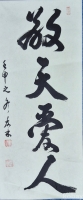 敬天愛人
壬申之